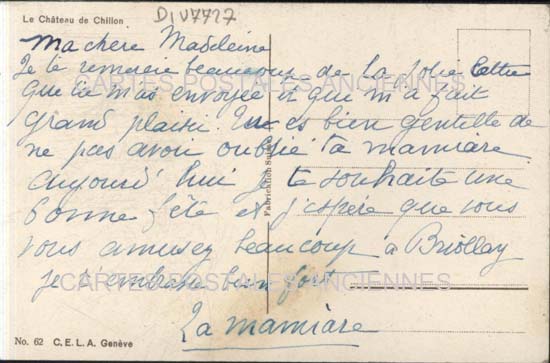 Le Château de Chillon
DIV7727
Ma chère Madeleine
Je te remercie beaucoup de la jolie lettre
que tu m'as envoyée et qui m'a fait
grand plaisir. Tu es bien gentille de
ne pas avoir oublié ta mamiare
aujourd'hui je te souhaite une
bonne fête et j'espère que vous
vous amusez beaucoup à Briollay
je t'embrasse bien fort
Ta mamiare
CARTES POSTALES ANCIENNES
CARTES POSTALES ANCIENNES
Fabrication Suisse
No. 62 C.E.L.A. Genève